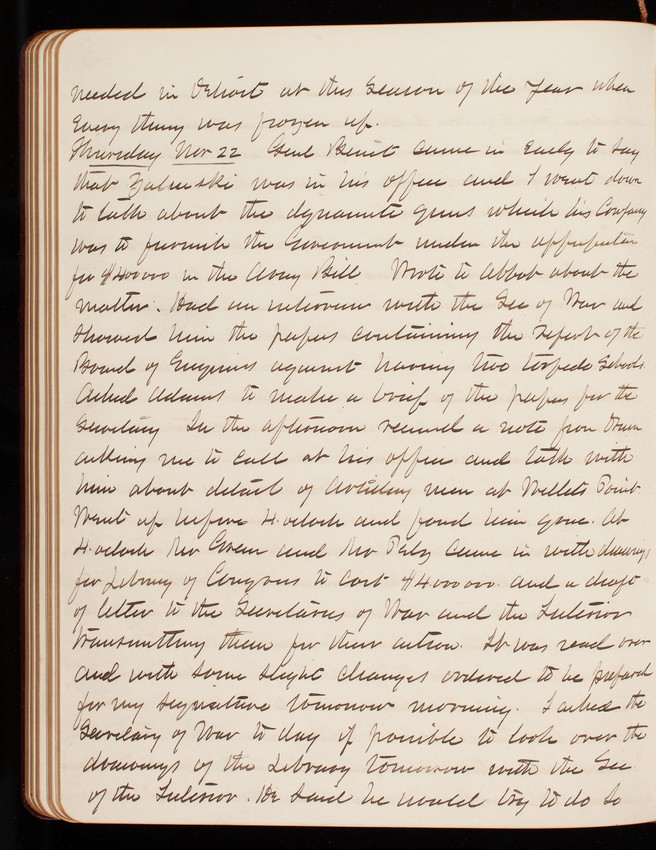 needed in Detroit at this season of the year when
Every thing was frozen up.
Thursday Nov 22 Genl Benet came in Early to say
that Zalinski was in his office and I went down
to talk about the dynamite guns which his Company
was to furnish the Government under the appropriation
for $400000 in the Army Bill. Wrote to Abbot about the
matter. Had an interview with the Sec of War and
showed him the papers containing the report of the
Board of Engineers against having two torpedo schools.
Asked Adams to make a brief of the papers for the
Secretary In the afternoon received a note from Drum
asking me to call at his office and talk with
him about detail of Artillery men at Willets Point.
Went up before 4. oclock and found him gone. At
4. oclock Mr Green and Mr Pelz came in with drawings
for Library of Congress to cost $4000000. and a draft
of letter to the Secretaries of War and the Interior
transmitting them for their action. It was read over
and with some slight changes ordered to be prepared
for my signature tomorrow morning. I asked the
Secretary of War to day if possible to look over the
drawings of the Library tomorrow with the Sec
of the Interior. He said he would try to do so